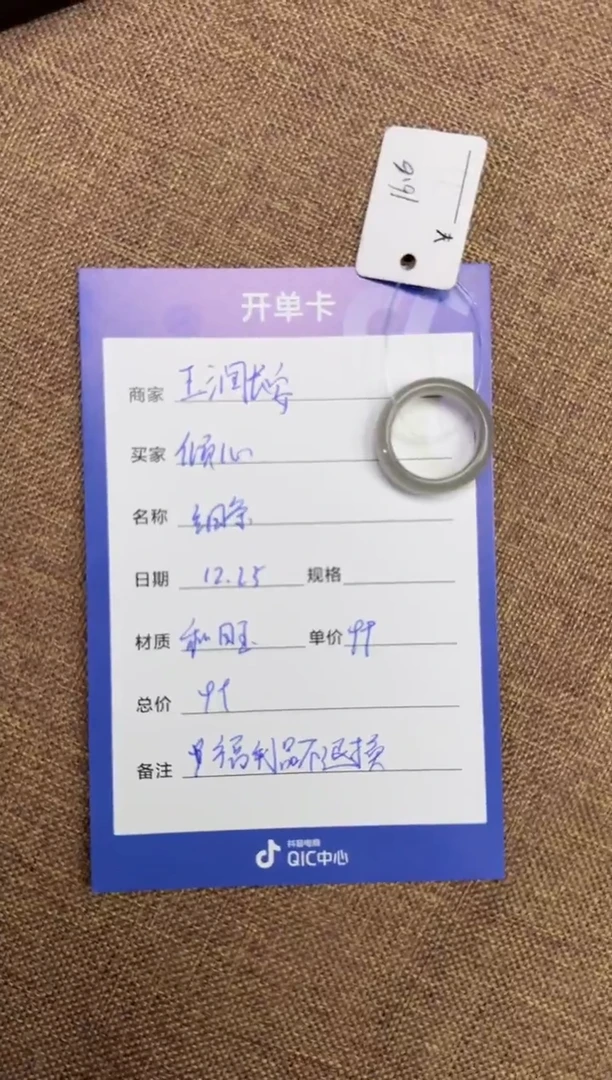 16.6
开单卡
商家 玉润长安
买家 倾心
名称
日期 12.25 规格
材质 和田玉 单价 99
总价 99
备注 福利品不退换
抖音电商
QIC中心